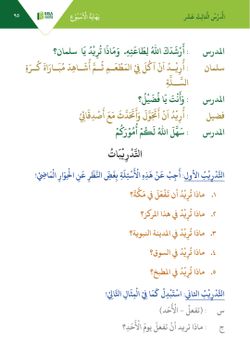 الدَّرْسُ الثَّالِثَ عَشَرَ
نِهَايَةُ الْأُسْبُوعِ
٩٥
المدرس : أَرْشَدَكَ اللهُ لِطَاعَتِهِ، وَمَاذَا تُرِيدُ يَا سلمان؟
سلمان : أُرِيدُ أَنْ آكُلَ فِي المَطْعَمِ ثُمَّ أُشَاهِدَ مُبَارَاةَ كُرَةِ
السَّلَّةِ
المدرس : وَأَنْتَ يَا فُضَيْلُ؟
فضيل : أُرِيدُ أَنْ أَتَجَوَّلَ وَأَتَحَدَّثَ مَعَ أَصْدِقَائِي
المدرس : سَهَّلَ اللهُ لَكُمْ أُمُورَكُمْ
التَّدْرِيبَاتُ
التَّدْرِيبُ الأول: أَجِبْ عَنْ هَذِهِ الْأَسْئِلَةِ بِغَضِّ النَّظَرِ عَنِ الْحِوَارِ الْمَاضِيْ!
١. ماذا تُرِيدُ أن تَفْعَلَ في مَكَّةَ؟
٢. ماذا تُرِيدُ في هذا المركز؟
٣. ماذا تُرِيدُ في المدينة النبوية؟
٤. ماذا تُرِيدُ في السوق؟
٥. ماذا تُرِيدُ في المطبخ؟
التَّدْرِيبُ الثاني: اسْتَبْدِلْ كَمَا فِي الْمِثَالِ التَّالِيْ!
س : (تفعلُ – الأَحَد)
ج : ماذا تريد أنْ تَفْعَلَ يومَ الْأَحَدِ؟